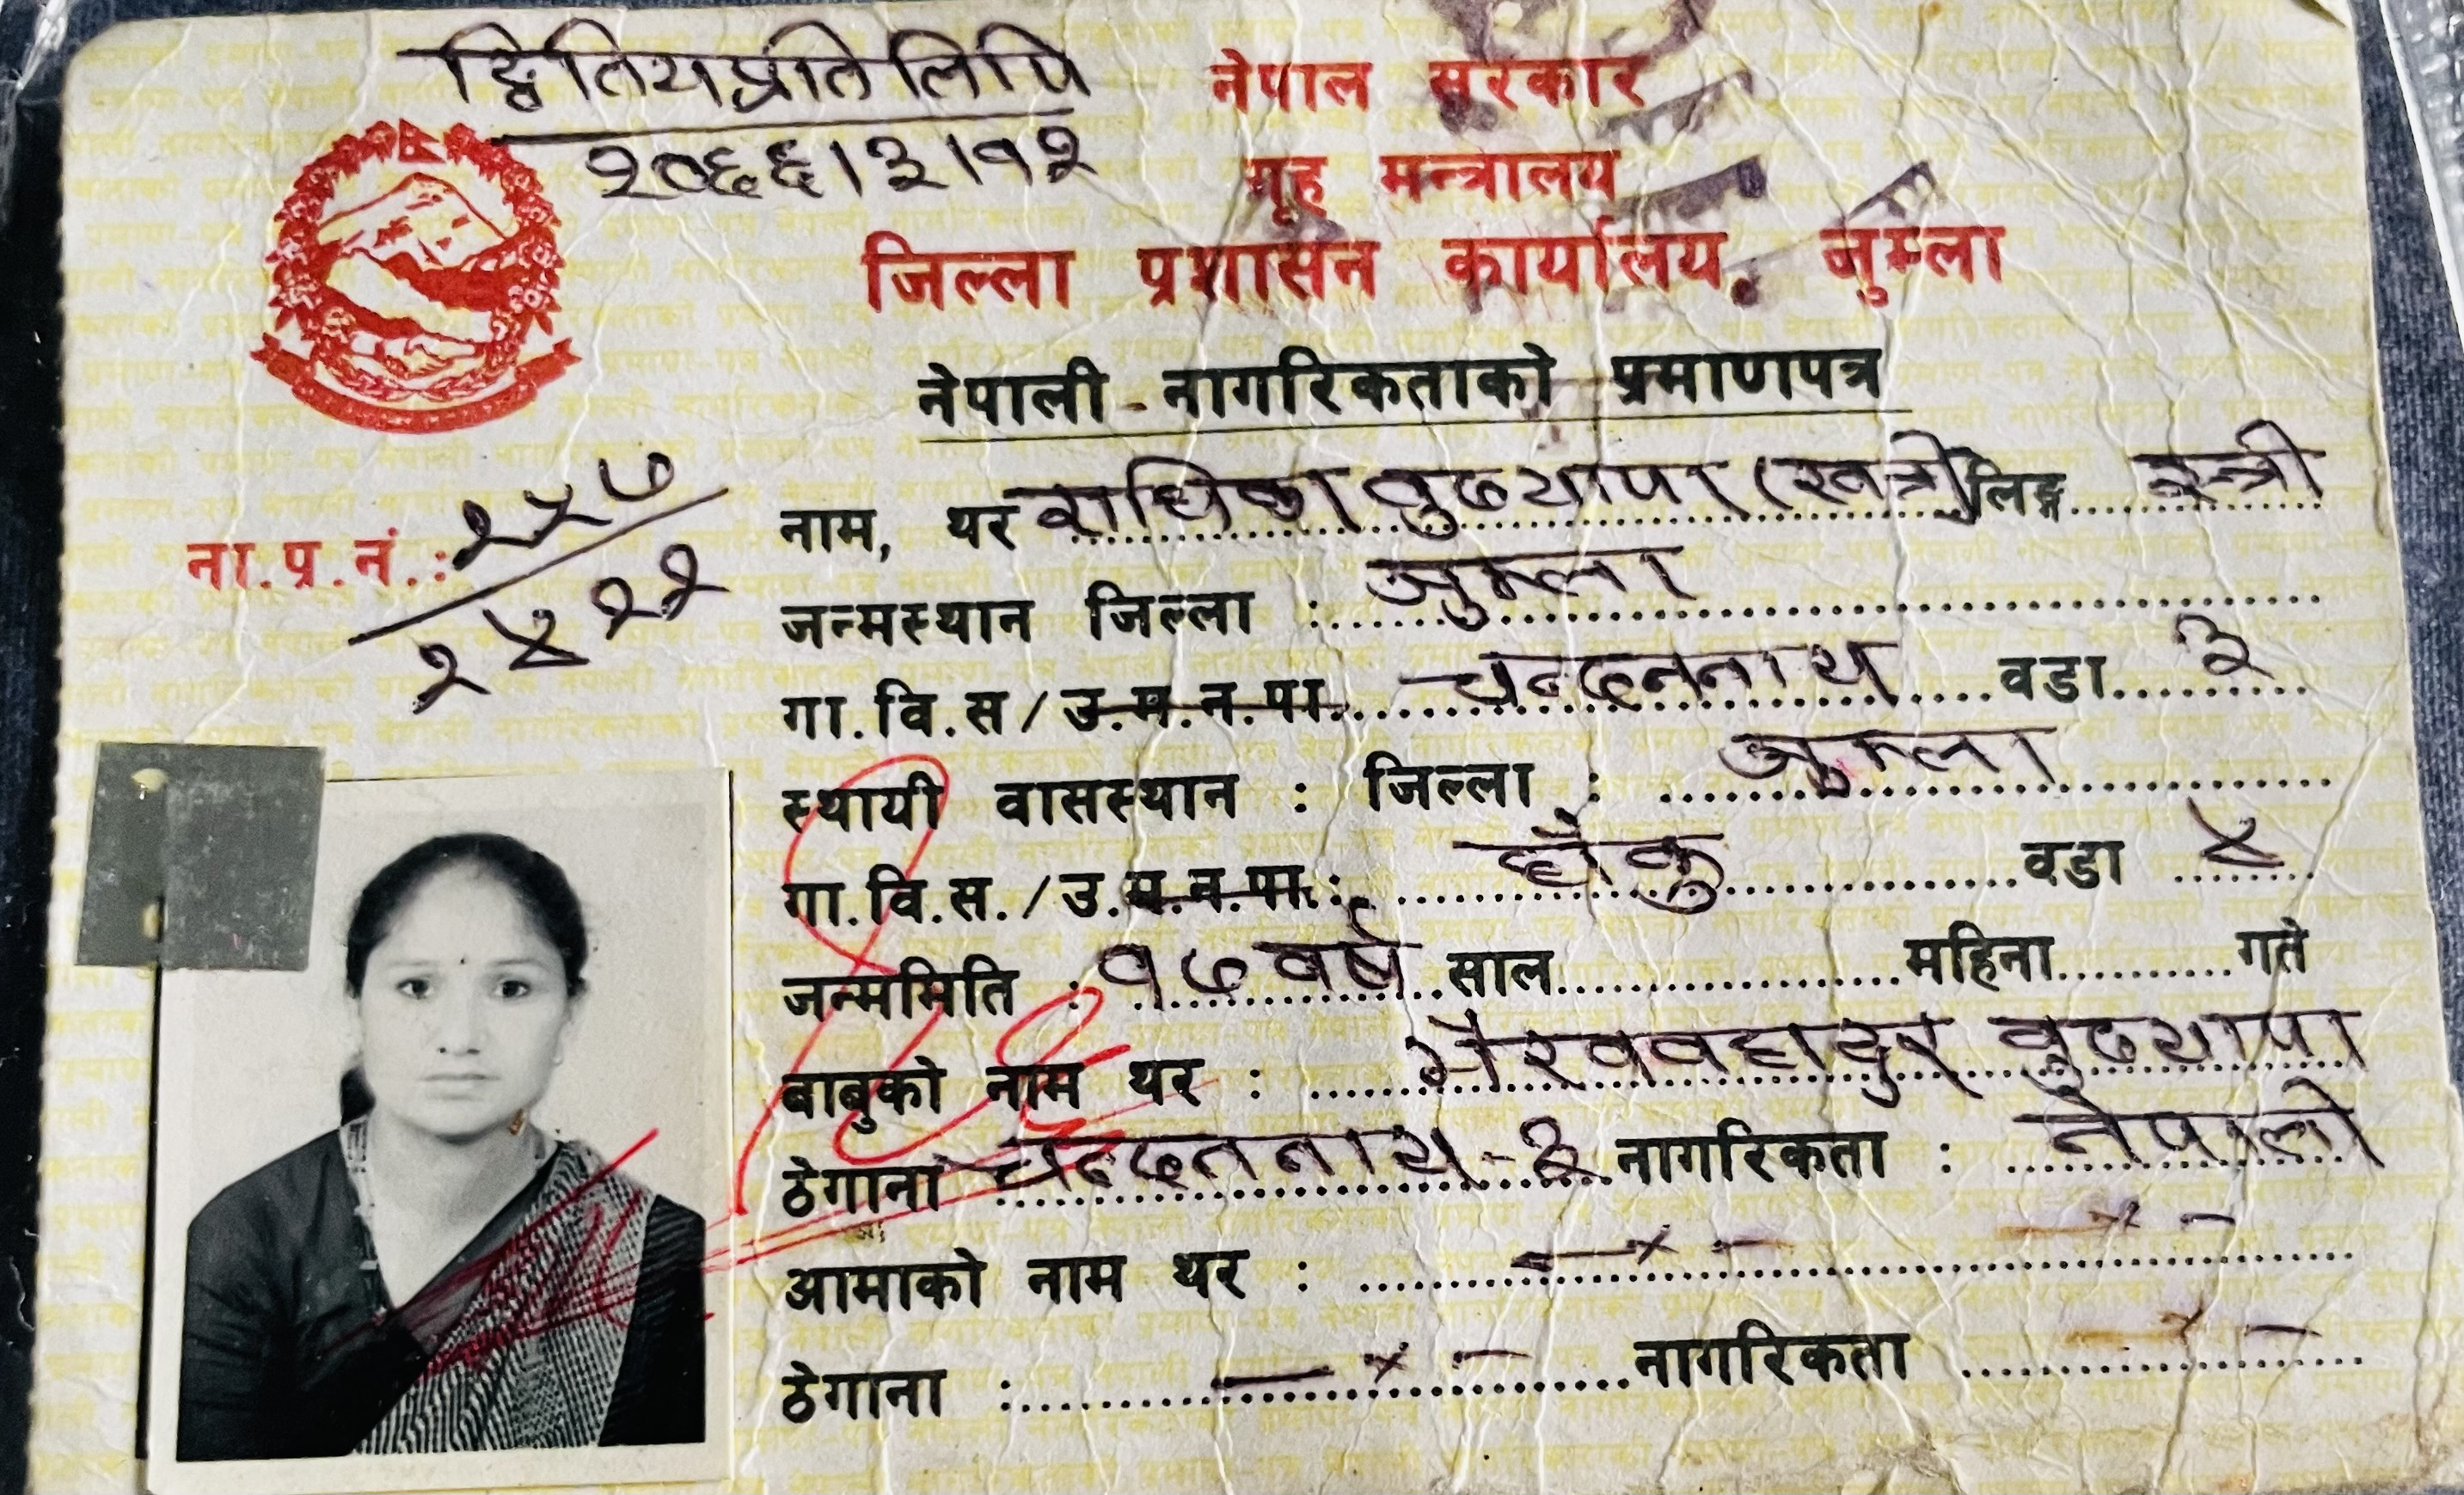 द्वितियप्रतिलिपि
२०६६।३।१२
नेपाल सरकार
गृह मन्त्रालय
जिल्ला प्रशासन कार्यालय, जुम्ला
नेपाली नागरिकताको प्रमाणपत्र
ना.प्र.नं.:
नाम, थर राधिका बुढथापा (खत्री) लिङ्ग स्त्री
जन्मस्थान जिल्ला : जुम्ला
गा.वि.स/उ.म.न.पा. चन्दननाथ वडा ३
स्थायी वासस्थान : जिल्ला : जुम्ला
गा.वि.स./उ.म.न.पा. : वडा
जन्ममिति : १७ वर्ष साल महिना गते
बाबुको नाम थर : भैरवबहादुर बुढथापा
ठेगाना चन्दननाथ-३ नागरिकता : नेपाली
आमाको नाम थर : —×— —×—
ठेगाना : —×— नागरिकता —×—